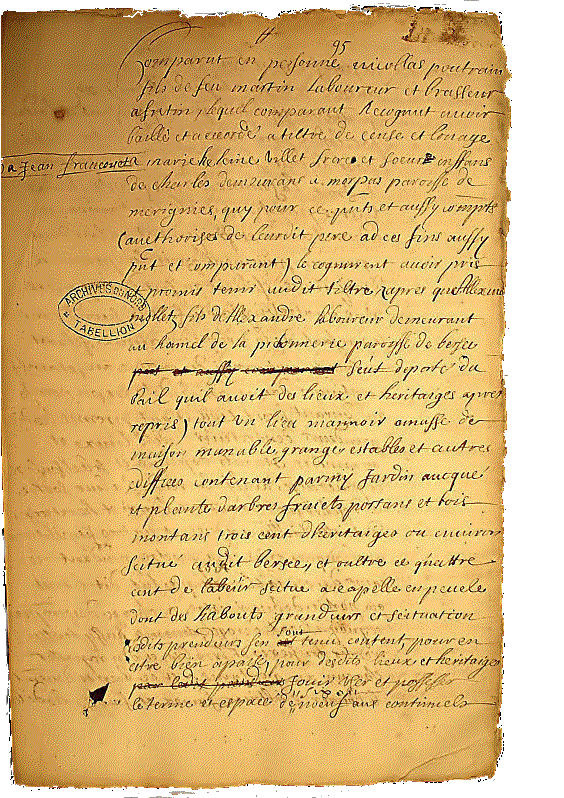 95
Comparut en personne nicollas poutrain
fils de feu martin laboureur et brasseur
a fretin, lequel comparant Recognut avoir
baillé et accordé a tiltre de cense et louage
a Jean francois et a marie heleine Villet frere et soeur enffans
de charles demeurans a morpas paroisse de
merignies, quy pour ce pnts et aussy compts
(aucthorises de leurdit pere ad ces fins aussy
pnt et comparant) recognurent avoir pris
et promis tenir audit tiltre, apres que Allexandre
mollet fils de Allexandre laboureur demeurant
au hamel de la picterie paroisse de bersee
pnt et aussy comparant s'est deporté du
bail quil avoit des lieux et heritaiges apres
repris) tout un lieu mannoir amassé de
maison manable, granges estables et autres
ediffices contenant parmy Jardin
et planté darbres fruicts portans et bois
montans trois cent dheritaiges ou environ
scitué audit bersee, et oultre ce quattre
cent de labeur scitué a capelle en pevele
dont des habouts grandeurs et scituation
lesdits preneurs sen sont tenu content, pour en
estre bien a paisés, pour desdits lieux et heritaiges
par ledit preneur Jouir user et possesser
le terme et espace de noeuf ans continuels
ARCHIVES DU NORD
TABELLION